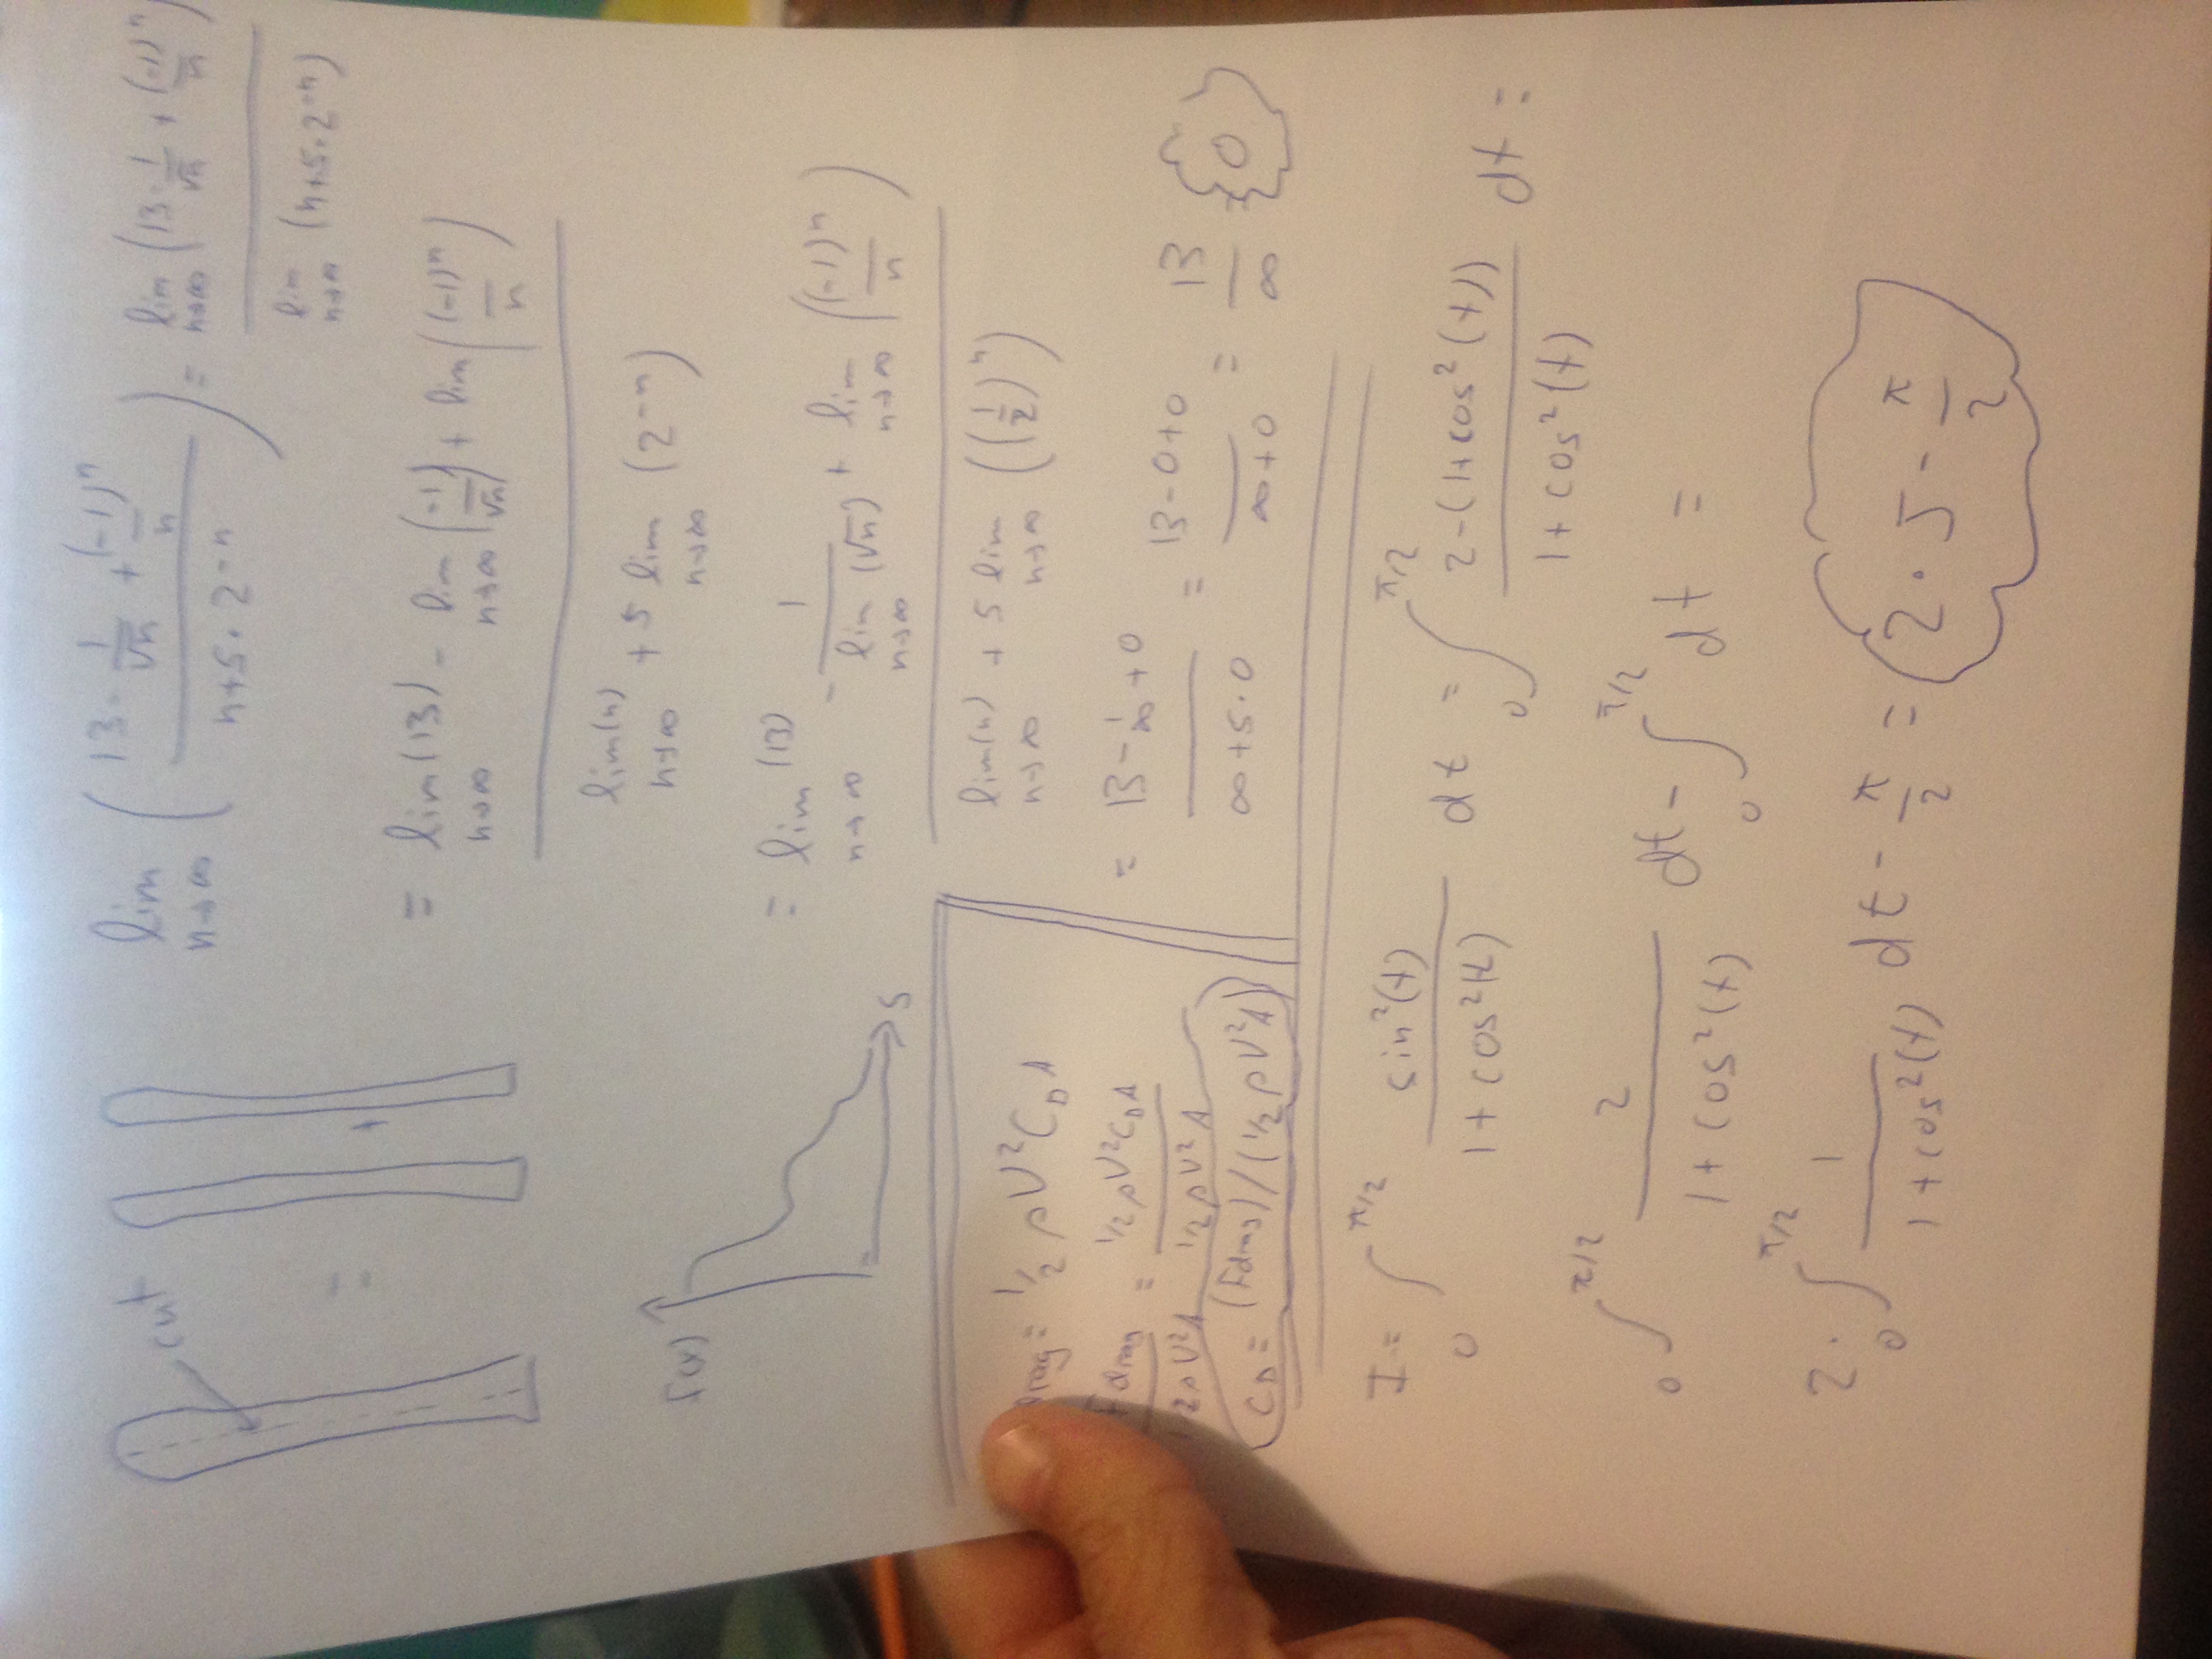 cut
=
+
lim n→∞ ( (13 - 1/√n + (-1)^n/n) / (n+5·2^-n) ) = lim n→∞ (13 - 1/√n + (-1)^n/n) / lim n→∞ (n+5·2^-n)
= ( lim n→∞ (13) - lim n→∞ (-1/√n) + lim ((-1)^n/n) ) / ( lim n→∞ (n) + 5 lim n→∞ (2^-n) )
= ( lim n→∞ (13) - 1/(lim n→∞ (√n)) + lim n→∞ ((-1)^n/n) ) / ( lim n→∞ (n) + 5 lim n→∞ ((1/2)^n) )
= (13 - 1/∞ + 0) / (∞+5·0) = (13-0+0) / (∞+0) = 13/∞ 0
f(x)
s
rag = 1/2 ρV²C_D A
Fdrag / 1/2ρV²A = 1/2ρV²C_D A / 1/2ρV²A
C_D = (Fdrag)/(1/2ρV²A)
I = ∫_0^π/2 sin²(t) / 1+cos²(t) dt = ∫_0^π/2 2-(1+cos²(t)) / 1+cos²(t) dt =
∫_0^π/2 2 / 1+cos²(t) dt - ∫_0^π/2 dt =
2·∫_0^π/2 1 / 1+cos²(t) dt - π/2 = 2·J - π/2